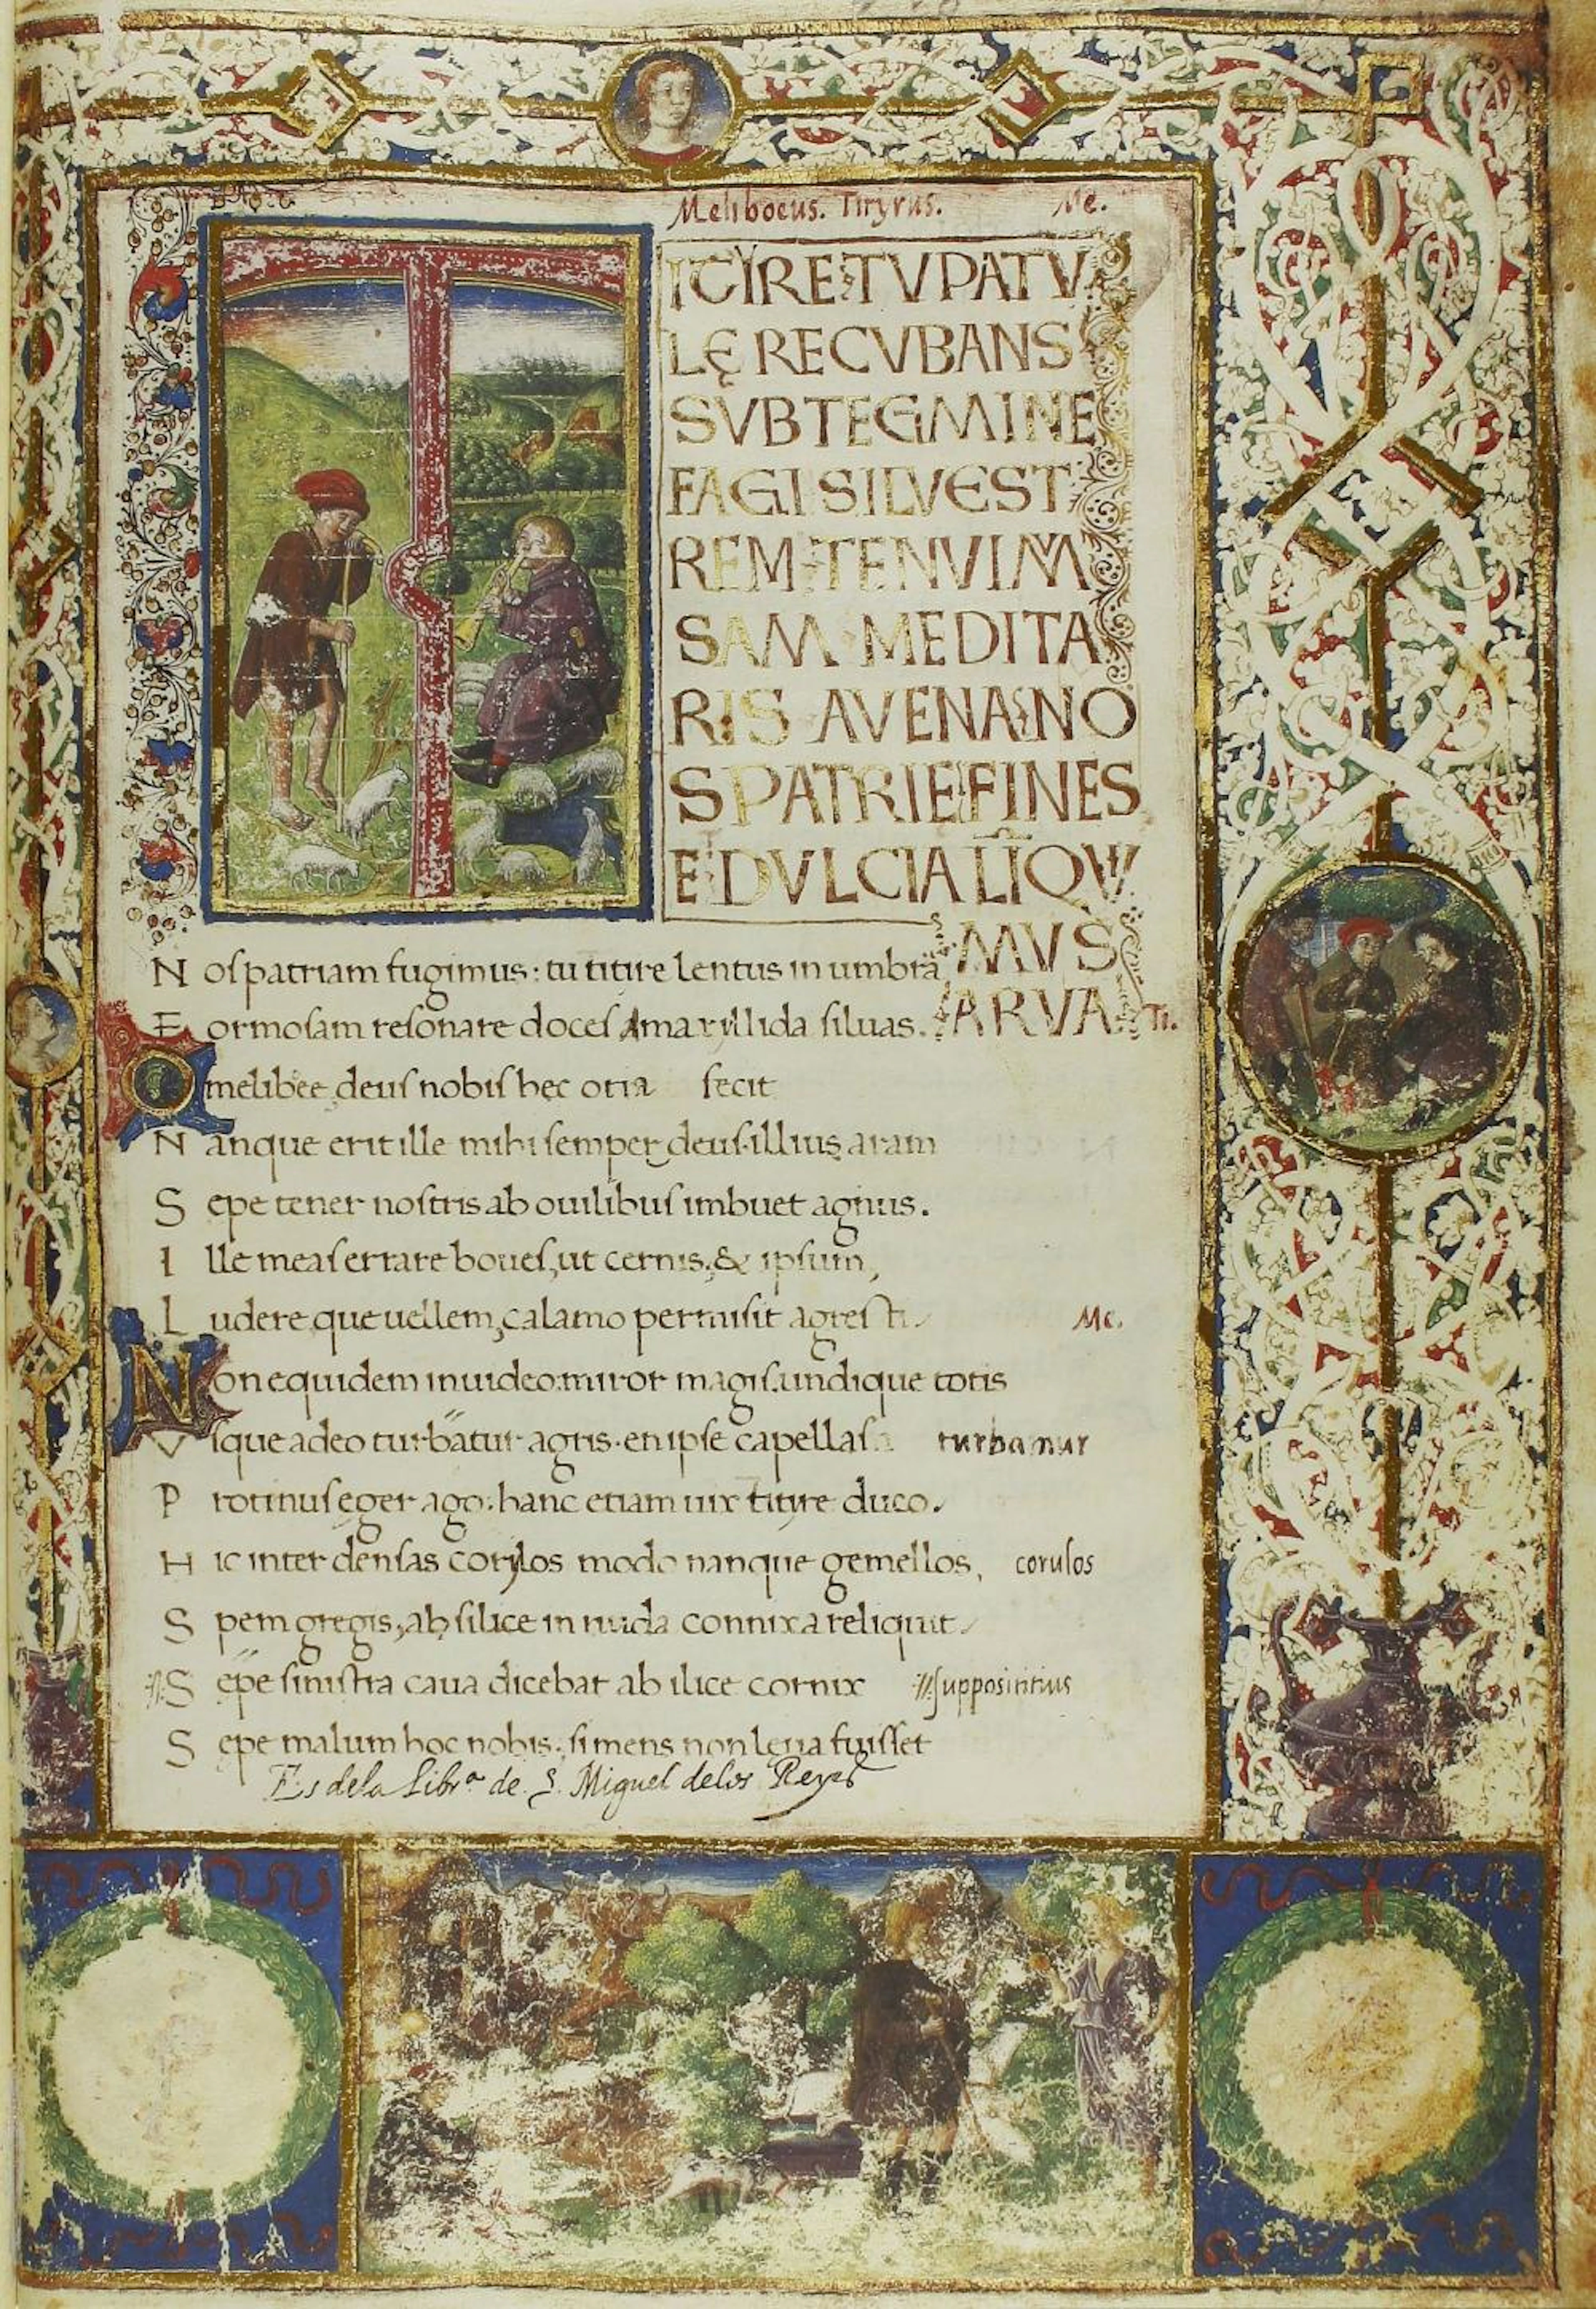 Meliboeus. Tityrus. Me.
ITYRE TV PATV
LĘ RECVBANS
SVB TEGMINE
FAGI SILVEST
REM TENVI M
SAM MEDITA
RIS AVENA NO
S PATRIE FINES
E T DVLCIA LIQVI
MVS
ARVA Ti.
N os patriam fugimus: tu titire lentus in umbra
F ormosam resonare doces Amaryllida siluas.
O melibee, deus nobis hęc otia fecit
N anque erit ille mihi semper deus. illius aram
S epe tener nostris ab ouilibus imbuet agnus.
I lle meas errare boues, ut cernis, & ipsum,
L udere que uellem, calamo permisit agresti. Me.
Non equidem inuideo: miror magis. undique totis
V sque adeo turbatur agris. en ipse capellas turbamur
P rotinus eger ago: hanc etiam uix tityre duco.
H ic inter densas corylos modo nanque gemellos, corulos
S pem gregis, ab silice in nuda connixa reliquit.
S epe sinistra caua dicebat ab ilice cornix supposititius
S epe malum hoc nobis: si mens non leua fuisset
Es de la Libr.ª de S. Miguel de los Reyes